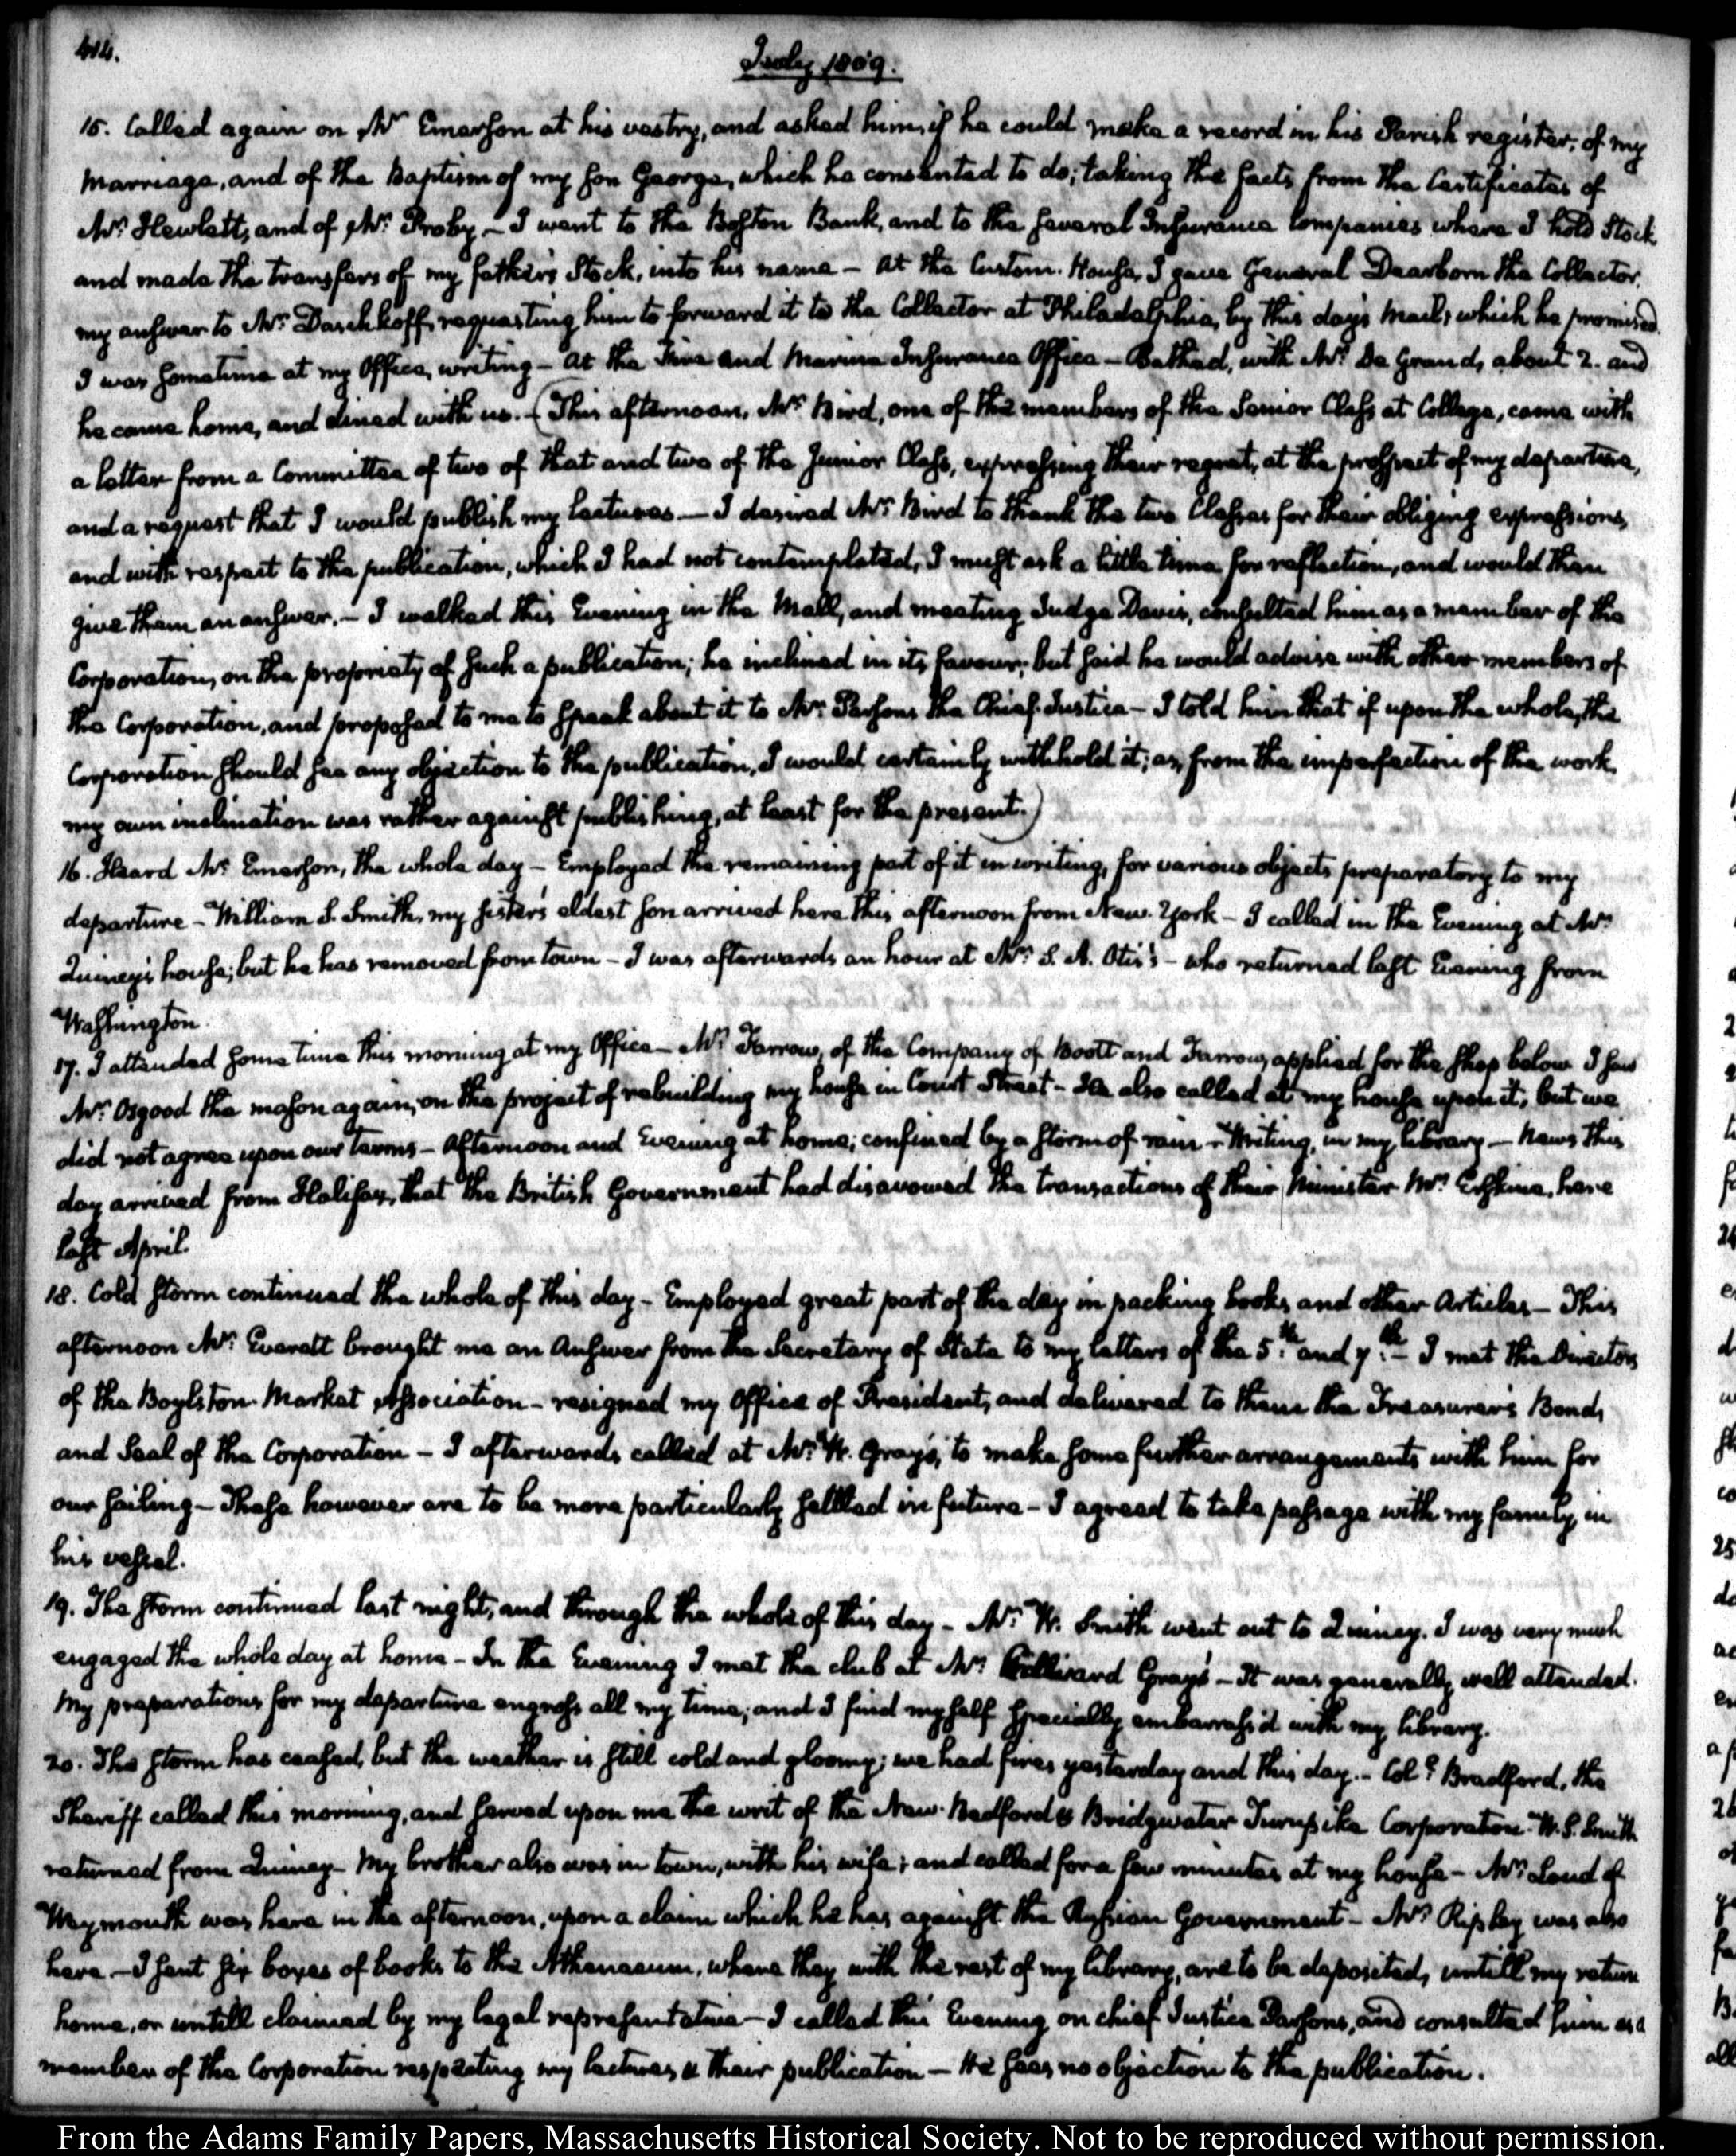 414.
July 1809.
15. Called again on Mr Emerson at his vestry, and asked him, if he could make a record in his Parish register, of my
marriage, and of the Baptism of my son George, which he consented to do; taking the facts from the Certificates of
Mr. Hewlett, and of Mr. Proby. - I went to the Boston Bank, and to the several Insurance Companies where I hold Stock
and made the transfers of my father's Stock, into his name - At the Custom-House, I gave General Dearborn the Collector,
my answer to Mr. Daschkoff, requesting him to forward it to the Collector at Philadelphia, by this day's Mail; which he promised.
I was sometime at my Office, writing - At the Fire and Marine Insurance Office - Bathed, with Mr. De Grand, about 2. and
he came home, and dined with us. - (This afternoon, Mr. Bird, one of the members of the Senior Class at College, came with
a letter from a Committee of two of that and two of the Junior Class, expressing their regret, at the prospect of my departure,
and a request that I would publish my lectures. - I desired Mr. Bird to thank the two Classes for their obliging expressions,
and with respect to the publication, which I had not contemplated, I must ask a little time for reflection, and would then
give them an answer. - I walked this Evening in the Mall, and meeting Judge Davis, consulted him as a member of the
Corporation, on the propriety of such a publication; he inclined in its favour; but said he would advise with other members of
the Corporation, and proposed to me to speak about it to Mr. Parsons the Chief Justice - I told him that if upon the whole, the
Corporation should see any objection to the publication, I would certainly withhold it; as, from the imperfection of the work,
my own inclination was rather against publishing, at least for the present.)
16. Heard Mr. Emerson, the whole day - Employed the remaining part of it in writing, for various objects preparatory to my
departure - William S. Smith, my sister's eldest son arrived here this afternoon from New-York - I called in the Evening at Mr.
Quincy's house; but he has removed from town - I was afterwards an hour at Mr. S. A. Otis's - who returned last Evening from
Washington.
17. I attended some time this morning at my Office - Mr. Farrow, of the Company of Boott and Farrow, applied for the shop below I saw
Mr. Osgood the mason again, on the project of rebuilding my house in Court Street - He also called at my house upon it, but we
did not agree upon our terms - Afternoon and Evening at home; confined by a storm of rain - Writing, in my library - News this
day arrived from Halifax, that the British Government had disavowed the transactions of their Minister Mr. Erskine, here
last April.
18. Cold storm continued the whole of this day - Employed great part of the day in packing books and other Articles - This
afternoon Mr. Everett brought me an Answer from the Secretary of State to my letters of the 5.th and 7.th - I met the Directors
of the Boylston-Market Association - resigned my Office of President, and delivered to them the Treasurer's Bond,
and Seal of the Corporation - I afterwards called at Mr. W. Gray's, to make some further arrangements with him for
our sailing - These however are to be more particularly settled in future - I agreed to take passage with my family, in
his vessel.
19. The storm continued last night, and through the whole of this day - Mr. W. Smith went out to Quincy. I was very much
engaged the whole day at home - In the Evening I met the club at Mr. Gray's - It was generally well attended.
My preparations for my departure engross all my time; and I find myself specially embarrass'd with my library.
20. The storm has ceased, but the weather is still cold and gloomy; we had fires yesterday and this day. - Col.l Bradford, the
Sheriff called this morning, and served upon me the writ of the New-Bedford & Bridgwater Turnpike Corporation. W. S. Smith
returned from Quincy - My brother also was in town, with his wife; and called for a few minutes at my house - Mr. Loud of
Weymouth was here in the afternoon, upon a claim which he has against the Russian Government - Mr. Ripley was also
here. - I sent six boxes of books to the Athenaeum, where they with the rest of my library, are to be deposited, untill my return
home, or untill claimed by my legal representative - I called this Evening on chief Justice Parsons, and consulted him as a
member of the Corporation respecting my lectures & their publication - He sees no objection to the publication.
From the Adams Family Papers, Massachusetts Historical Society. Not to be reproduced without permission.